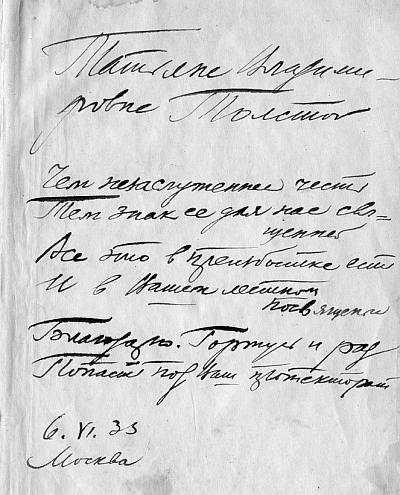 Татьяне Владими-
ровне Толстой
Чем незаслуженнее честь
Тем знак ее для нас свя-
щенней
Все это в преизбытке есть
И в Вашем лестном
посвященьи
Благодарю. Горжусь и рад
Попасть под Ваш протекторат
6. VI. 33
Москва